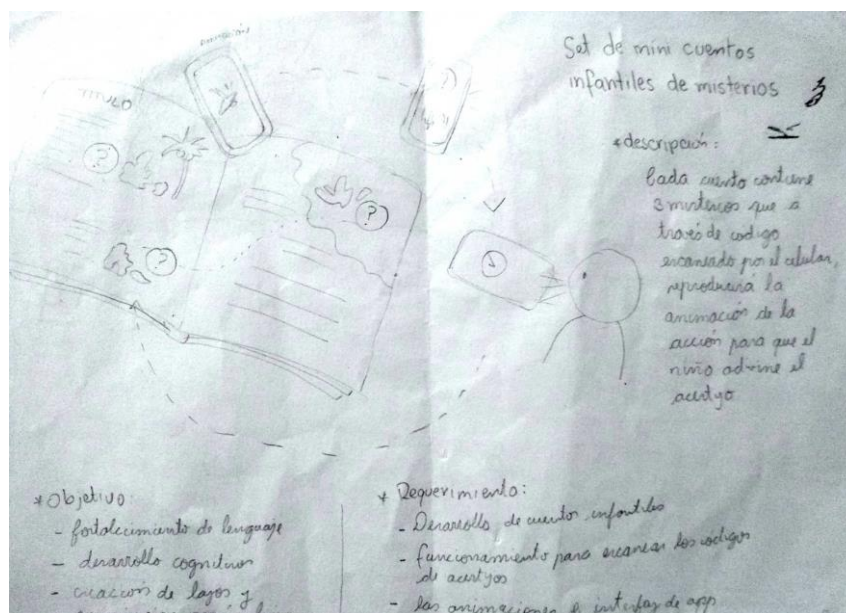 TITULO
?
?
?
?
Set de mini cuentos
infantiles de misterios
*descripción:
Cada cuento contiene
3 misterios que a
través de codigo
escaneado por el celular,
reproducirá la
animación de la
acción para que el
niño advine el
acertyo
*Objetivo:
- fortalecimiento de lenguaje
- desarrollo cognitivos
- creación de lazos y
* Requerimiento:
- Desarrollo de cuentos infantiles
- funcionamiento para escanear los codigos
de acertyos
- las animaciones de interfaz de app